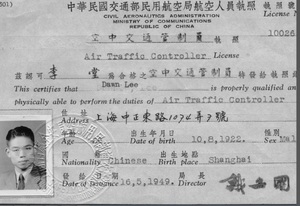 501)
中華民國交通部民用航空局航空人員執照
CIVIL AERONAUTICS ADMINISTRATION
MINISTRY OF COMMUNICATIONS
REPUBLIC OF CHINA
執照
License
空中交通管制員
10026
Air Traffic Controller License
茲認可 李 堂 為合格之 空中交通管制員 特發給執照
This certifies that Dawn Lee is properly qualified and
physically able to perform the duties of Air Traffic Controller
住址
Address 上海中正東路1074弄 號
年齡 出生年月日 性別
Age Date of Birth 10,8,1922. Sex Mal
國籍 出生地點
Nationality Chinese Birth place Shanghai
發給日期 局長
Date of Issuance 16,5,1949. Director